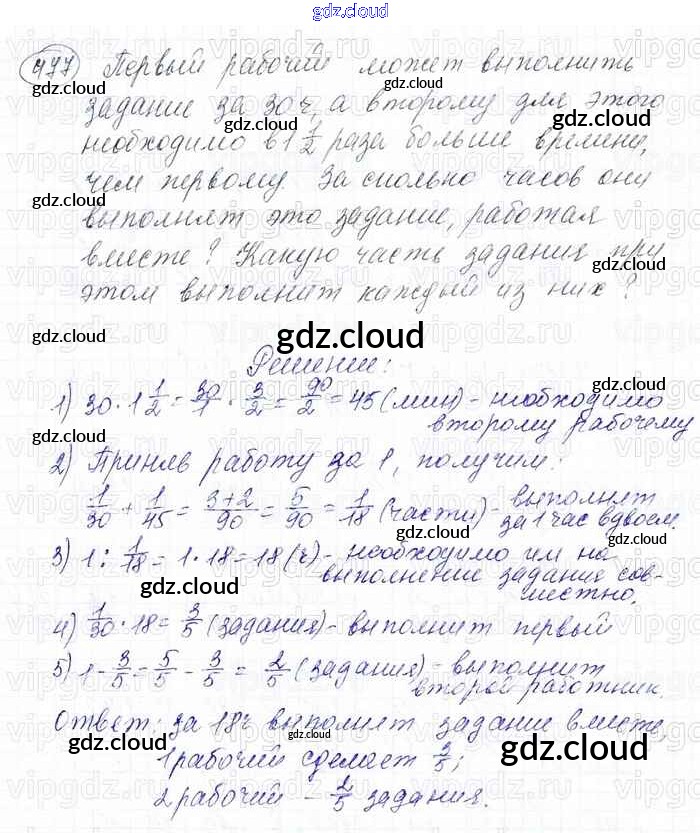 gdz.cloud
477 Первый рабочий может выполнить
задание за 30 ч, а второму для этого
необходимо в 1 1/2 раза больше времени,
чем первому. За сколько часов они
выполнят это задание, работая
вместе? Какую часть задания при
этом выполнит каждый из них?
gdz.cloud
Решение:
1) 30 · 1 1/2 = 30/1 · 3/2 = 90/2 = 45 (мин) - необходимо
второму рабочему
2) Приняв работу за 1, получим:
1/30 + 1/45 = (3+2)/90 = 5/90 = 1/18 (части) - выполнят
за 1 час вдвоем.
3) 1 : 1/18 = 1 · 18 = 18 (ч) - необходимо им на
выполнение задание сов-
местно.
4) 1/30 · 18 = 3/5 (задания) - выполнит первый
5) 1 - 3/5 = 5/5 - 3/5 = 2/5 (задания) - выполнит
второй работник.
Ответ: за 18 ч выполнят задание вместе,
1 рабочий сделает 3/5;
gdz.cloud
2 рабочий - 2/5 задания.